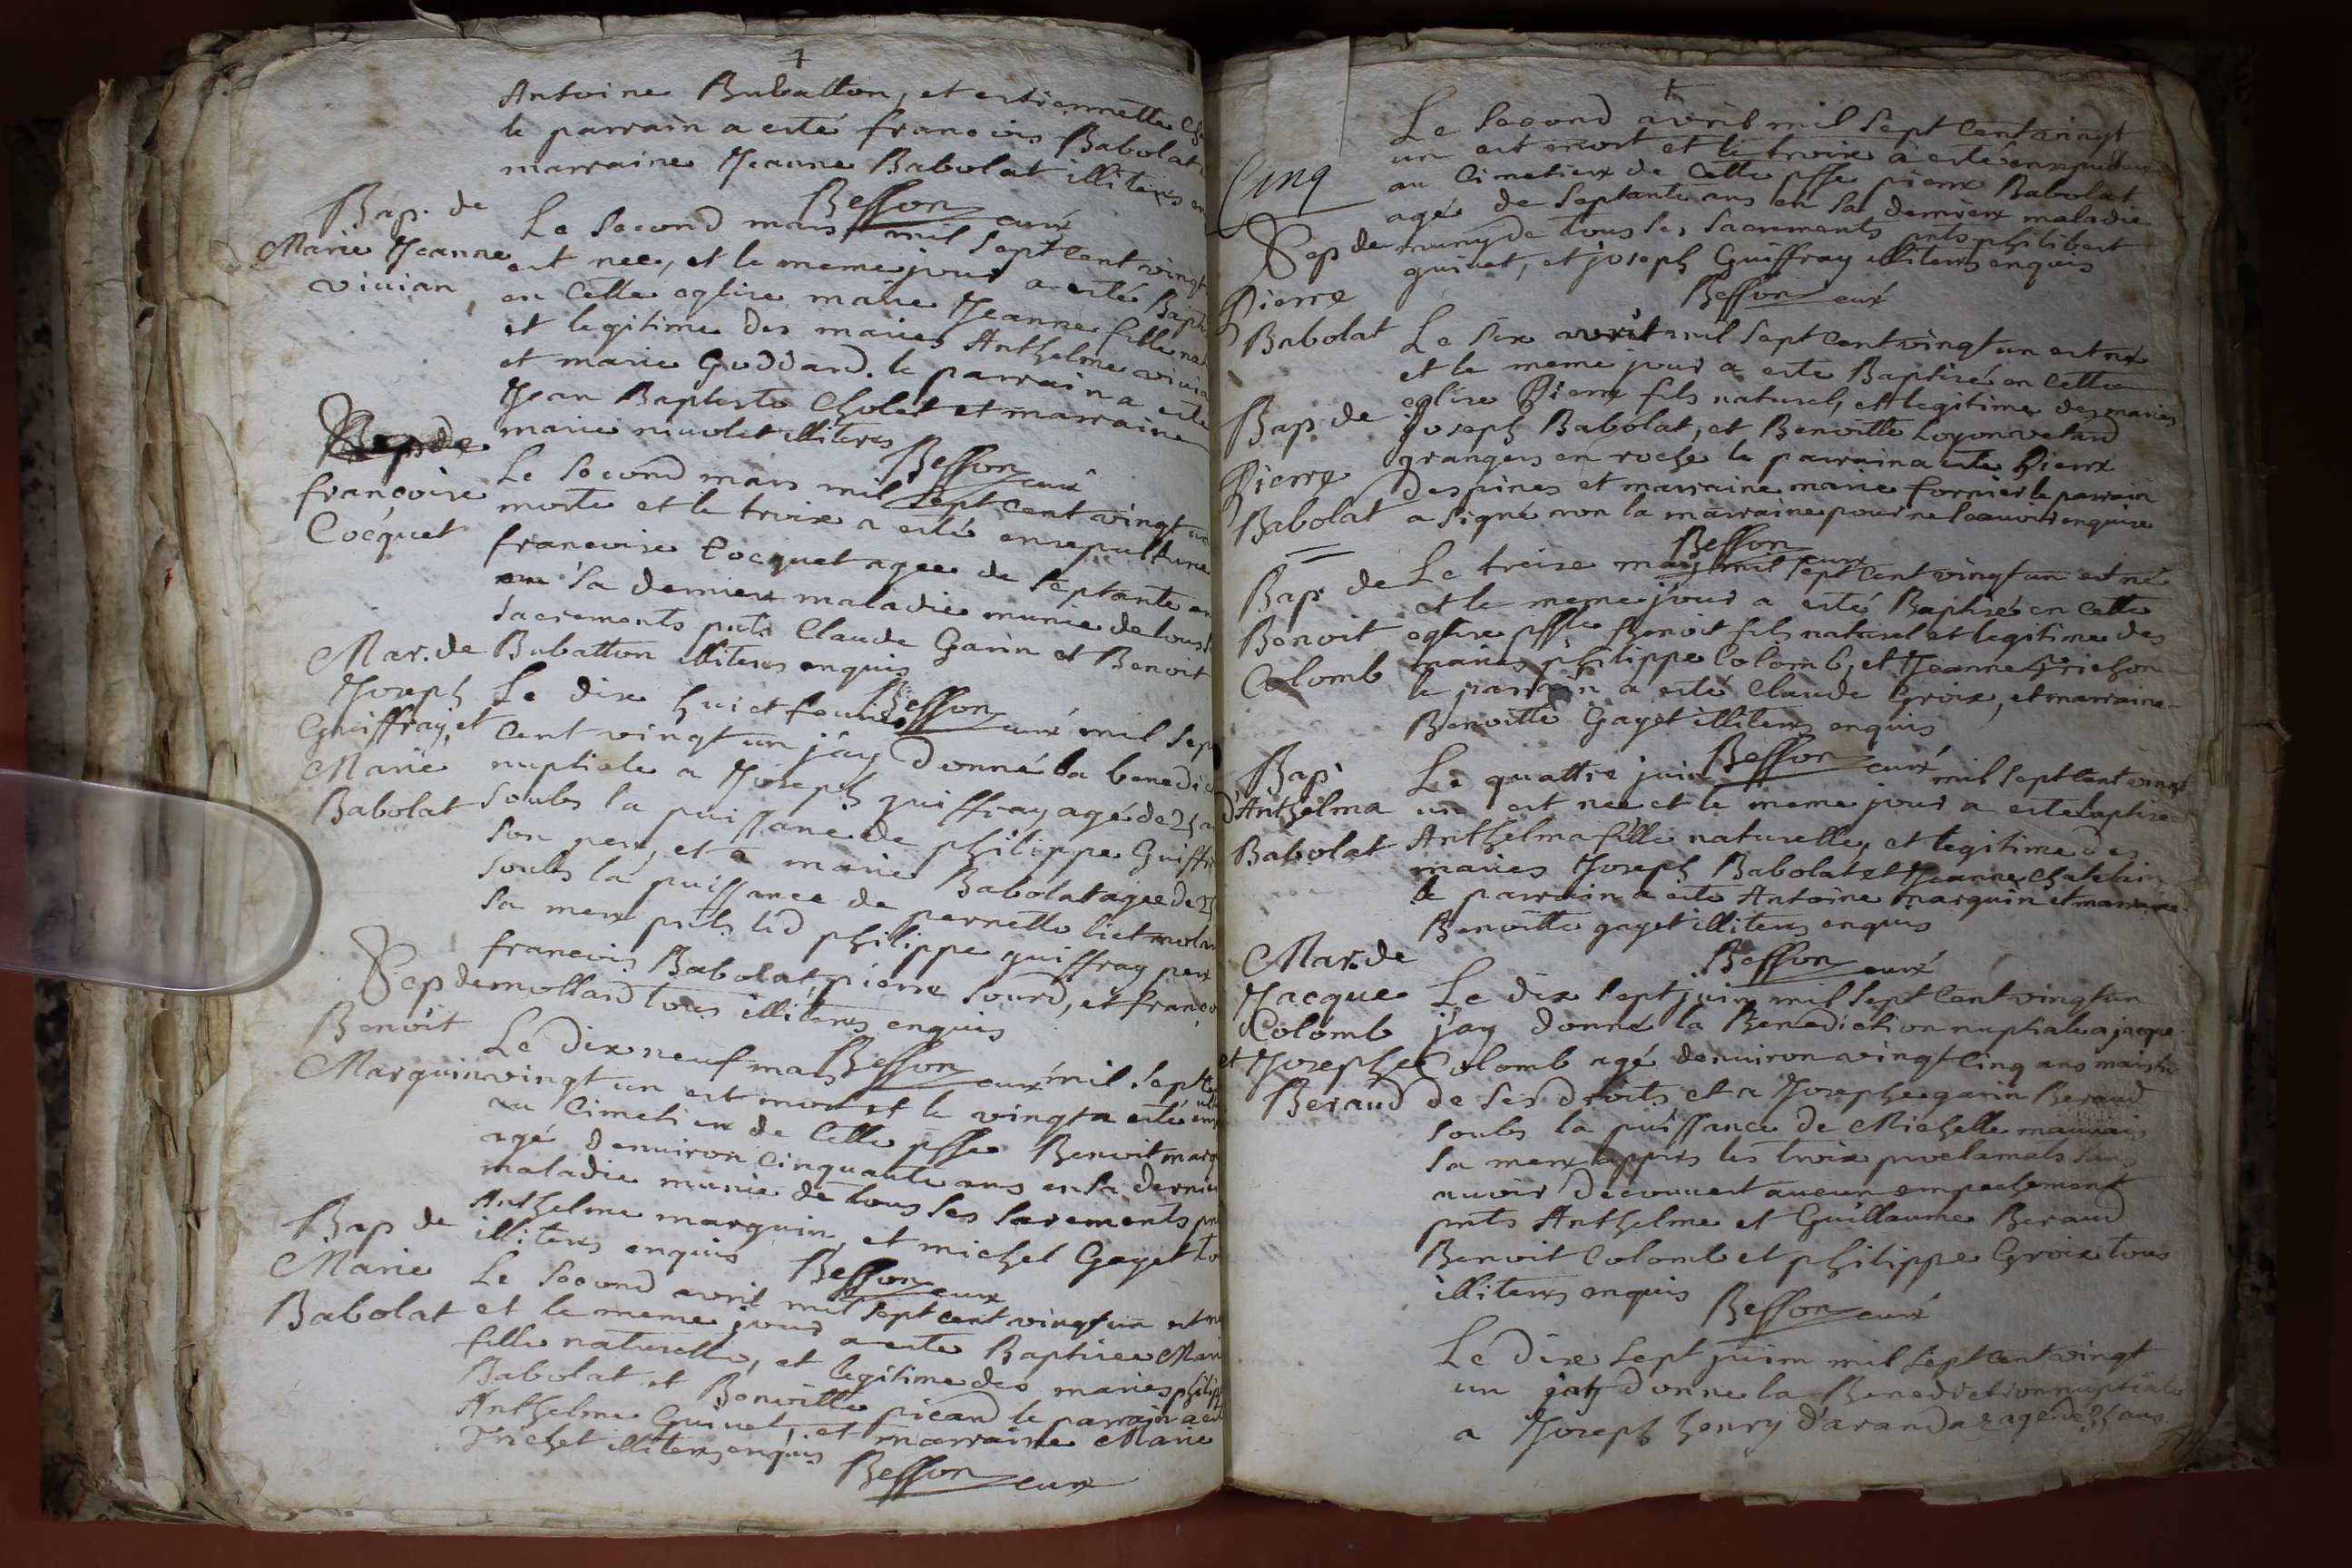 Antoine Bubatton, et estiennette
le parrain a esté francois Babolat
marraine Jeanne Babolat illiteres
Besson curé
Bap. de
Marie Jeanne
vivian
Le second mars mil sept cent vingt
est nee, et le meme jour a esté Bapt
en cette eglise marie Jeanne fille na
et legitime des maries Anthelme vivia
et marie Goddard. le parrain a esté
Jean Baptiste Cholet et marraine
marie nicolet illiteres
Besson curé
Sep de
françoise
Cocquet
Le second mars mil sept cent vingt un
morte et le troix a esté ensepulturee
francoise Cocquet agee de septante an
en sa derniere maladie munie de tous
sacrements pnts Claude Garin et Benoit
Bubatton illiteres enquis
Besson curé
Mar. de
Joseph
Guiffray, et
Marie
Babolat
Le dix huict feurier mil sep
cent vingt un j'ay donné la benedic
nuptiale a Joseph guiffray agé de 25 a
soubs la puissance de philippe Guiffr
son pere, et a marie Babolat agee de 25
soubs la puissance de pernette liet molar
sa mere pnts led philippe guiffray pere
francois Babolat, pierre Sourd, et franço
mollard tous illiteres enquis
Besson curé
Sep de
Benoit
Marguin
Le dix neuf mars mil sept ce
vingt un est mort et le vingt a esté ens
au Cimetiere de Cette psse Benoit marg
agé denviron cinquante ans en sa dernie
maladie munie de tous ses sacrements pn
Anthelme marguin, et michel Gayet to
illiteres enquis
Besson curé
Bap de
Marie
Babolat
Le second avril mil sept cent vingt un est ne
et le meme jour a esté Baptisee Mari
fille naturelle, et legitime des maries philip
Babolat et Benoitte picard le parrain a est
Anthelme Guinet, et marraine Marie
Trichet illiteres enquis
Besson curé
Cinq
Le second avril mil sept cent vingt
un est mort et le troix a esté ensepulturé
au Cimetiere de Cette psse pierre Babolat
agé de septante ans en sa derniere maladie
muny de tous ses sacrements pnts philibert
guinet, et joseph Guiffray illiteres enquis
Besson curé
Sep de
Pierre
Babolat
Le six avril mil sept cent vingt un est né
et le meme jour a esté Baptisé en cette
eglise Pierre fils naturel, et legitime des maries
Joseph Babolat, et Benoitte Loyon velard
grangers en roche le parrain a esté Pierre
despines et marraine marie fornier le parrain
a signé non la marraine pour ne scauoir enquise
Besson curé
Bap. de
Pierre
Babolat
Le treise may mil sept cent vingt un est né
et le meme jour a esté Baptisé en cette
eglise pslle Benoit fils naturel et legitime des
maries philippe Colomb, et Jeanne Trichon
le parrain a esté Claude Groix, et marraine
Benoitte Gayet illiteres enquis
Besson curé
Bap. de
Benoit
Colomb
Le quattre juin mil sept cent vingt
un est nee et le meme jour a esté baptisee
Anthelma fille naturelle, et legitime des
maries Joseph Babolat et Jeanne Chatelain
le parrain a esté Antoine marguin et marraine
Benoitte gayet illiteres enquis
Besson curé
Bap.
d'Anthelma
Babolat
Mar. de
Jacque
Colomb
et Josephe
Beraud
Le dix sept juin mil sept cent vingt un
j'ay donné la Benediction nuptiale a jacque
Colomb agé denviron vingt cinq ans maistre
de ses droits et a Josephe garin Beraud
soubs la puissance de Michelle mauvais
sa mere apprés les troix proclamats sans
auvoir decouvert aucun empechement
pnts Anthelme et Guillaume Beraud
Benoit Colomb et philippe Groix tous
illiteres enquis
Besson curé
Le dix sept juin mil sept cent vingt
un jay donne la Benediction nuptiale
a Joseph henry d'arandas age de 25 ans